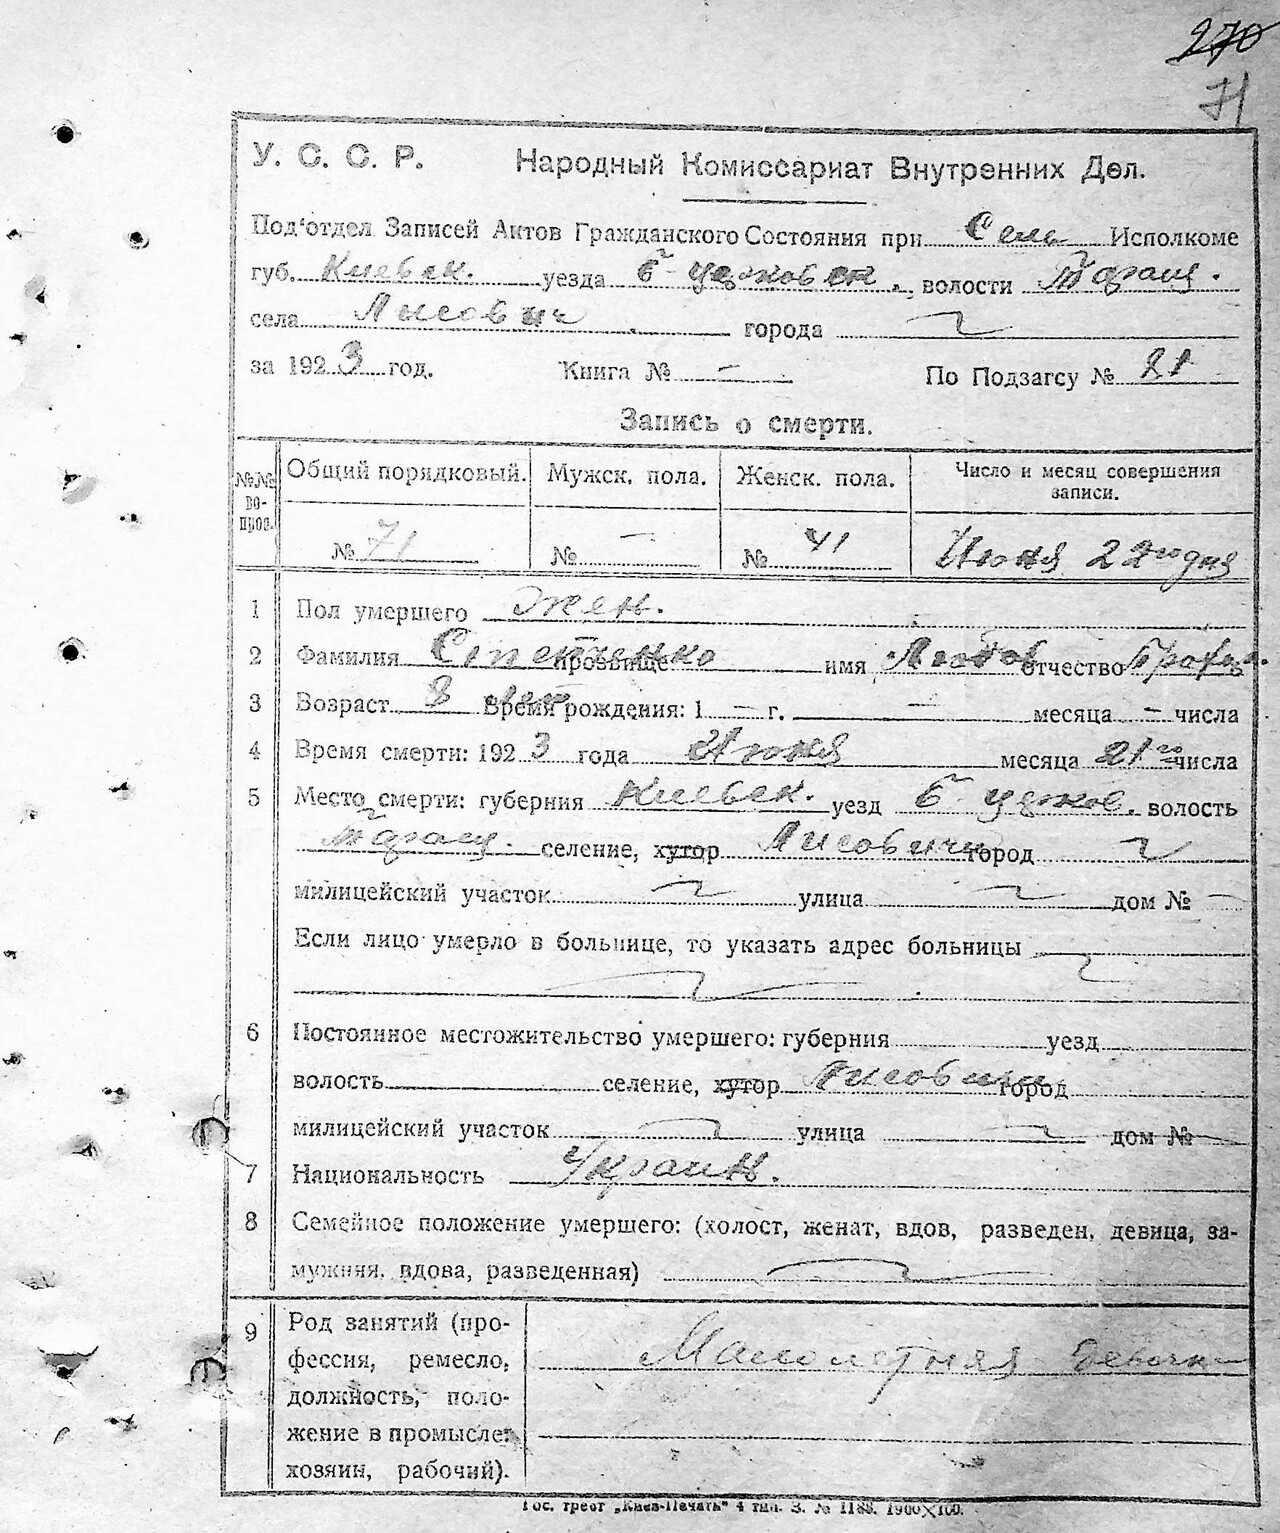 270
71
У. С. С. Р. Народный Комиссариат Внутренних Дел.
Под'отдел Записей Актов Гражданского Состояния при Сель Исполкоме
губ. Киевск. уезда Б-Церковск. волости Таращ.
села Лисовичи города
за 1923 год. Книга № — По Подзагсу № 21
Запись о смерти.
№№ вопрос. Общий порядковый. Мужск. пола. Женск. пола. Число и месяц совершения
записи.
№ 71 № — № 41 Июня 22го дня
1 Пол умершего Жен.
2 Фамилия прозвище Степченко имя Любов отчество
3 Возраст 8 лет Время рождения: 1 — г. — месяца — числа
4 Время смерти: 1923 года Июня месяца 21го числа
5 Место смерти: губерния Киевск. уезд Б-Церков. волость
Таращ. селение, хутор Лисовичи город
милицейский участок улица дом № —
Если лицо умерло в больнице, то указать адрес больницы
6 Постоянное местожительство умершего: губерния уезд
волость селение, хутор Лисовичи город
милицейский участок улица дом № —
7 Национальность Украин.
8 Семейное положение умершего: (холост, женат, вдов, разведен, девица, за-
мужняя, вдова, разведенная)
9 Род занятий (про-
фессия, ремесло, Малолетняя девочка
должность, поло-
жение в промысле:
хозяин, рабочий).
Гос. трест „Киев-Печать" 4 тип. З. № 1188. 1900×100.